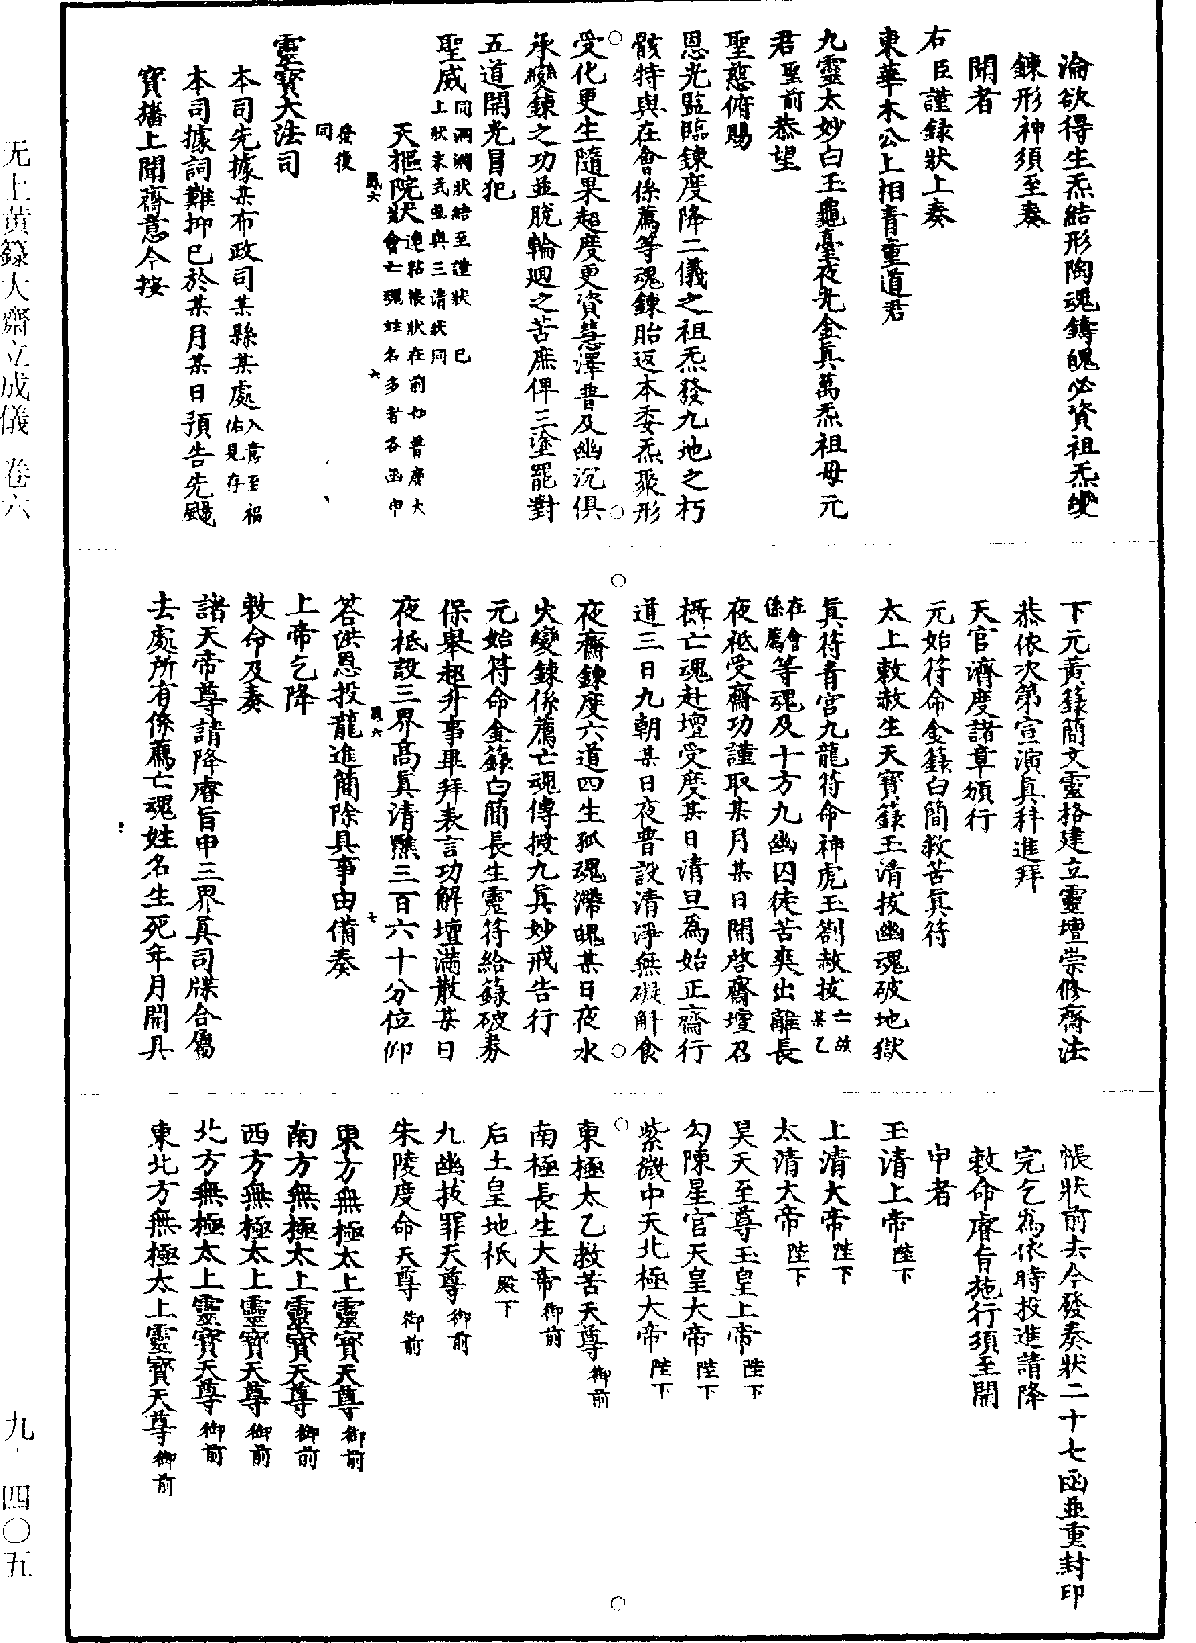 淪欲得生炁結形陶魂鑄魄必資祖炁變
鍊形神須至奏
聞者
右臣謹錄狀上奏
東華木公上相青童道君
九靈太妙白玉龜臺夜光金真萬炁祖母元
君聖前恭望
聖慈俯賜
恩光監臨鍊度降二儀之祖炁發九地之朽
骸特與在會係薦等魂鍊胎返本委炁聚形
受化更生隨果超度更資慧澤普及幽沉俱
承變鍊之功並脫輪迴之苦庶俾三塗罷對
五道開光冒犯
聖威同淵淵狀結至謹狀已
上狀末式並與三清狀同
天樞院狀連粘帳狀在前如普度大
會亡魂姓名多者各函申
發後
同
靈寶大法司
本司先據某布政司某縣某處入意至福
佑見存
本司據詞難抑已於某月某日預告先颺
寶旛上聞齋意今按
下元黃籙簡文靈格建立靈壇崇修齋法
恭依次第宣演真科進拜
天官濟度諸章頒行
元始符命金籙白簡救苦真符
太上敕赦生天寶籙玉清拔幽魂破地獄
真符青宮九龍符命神虎玉劄赦拔亡故
某乙
在會
係薦等魂及十方九幽囚徒苦爽出離長
夜祇受齋功謹取某月某日開啓齋壇召
攝亡魂赴壇受度某日清旦為始正齋行
道三日九朝某日夜普設清淨無礙斛食
夜齋鍊度六道四生孤魂滯魄某日夜水
火變鍊係薦亡魂傳授九真妙戒告行
元始符命金籙白簡長生靈符給籙破券
保舉超升事畢拜表言功解壇滿散某日
夜祇設三界高真清醮三百六十分位仰
荅洪恩投龍進簡除具事由備奏
上帝乞降
敕命及奏
諸天帝尊請降睿旨申三界真司牒合屬
去處所有係薦亡魂姓名生死年月開具
悵狀前去今發奏狀二十七函並重封印
完乞為依時投進請降
敕命睿旨施行須至開
申者
玉清上帝陛下
上清大帝陛下
太清大帝陛下
昊天至尊玉皇上帝陛下
勾陳星官天皇大帝陛下
紫微中天北極大帝陛下
東極太乙救苦天尊御前
南極長生大帝御前
后土皇地祇殿下
九幽拔罪天尊御前
朱陵度命天尊御前
東方無極太上靈寶天尊御前
南方無極太上靈寶天尊御前
西方無極太上靈寶天尊御前
北方無極太上靈寶天尊御前
東北方無極太上靈寶天尊御前
无上黃籙大齋立成儀 卷六
九·四〇五